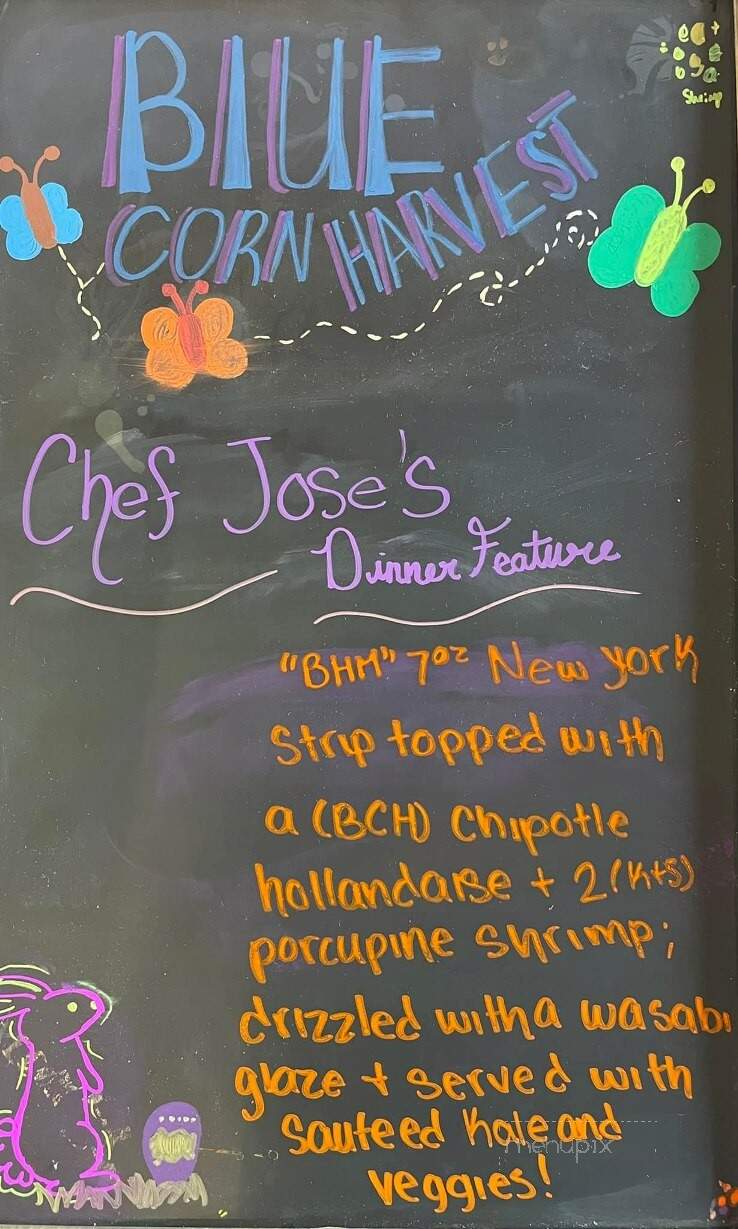 BLUE
CORN HARVEST
Shrimp
Chef Jose's
Dinner Feature
"BHM" 7oz New York
Strip topped with
a (BCH) Chipotle
hollandaise + 2 (K+S)
porcupine shrimp;
drizzled with a wasabi
glaze + served with
sauteed kale and
veggies!
menupix